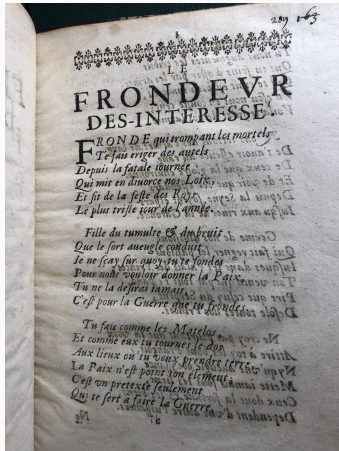 289 163
LE
FRONDEVR
DES-INTERESSE'.
FRONDE qui trompant les mortels
Te fais eriger des autels
Depuis la fatale iournee
Qui mit en divorce nos Loix,
Et fit de la feste des Roys
Le plus triste iour de l'annee.
Fille du tumulte & du bruit
Que le sort aueugle conduit,
Ie ne sçay sur quoy tu te fondes
Pour nous vouloir donner la Paix,
Tu ne la desiras iamais,
C'est pour la Guerre que tu frondes.
Tu fais comme les Matelos
Et comme eux tu tournes le dos
Aux lieux où tu veux prendre terre,
La Paix n'est point ton element
C'est vn pretexte seulement
Qui te sert à faire la Guerre.